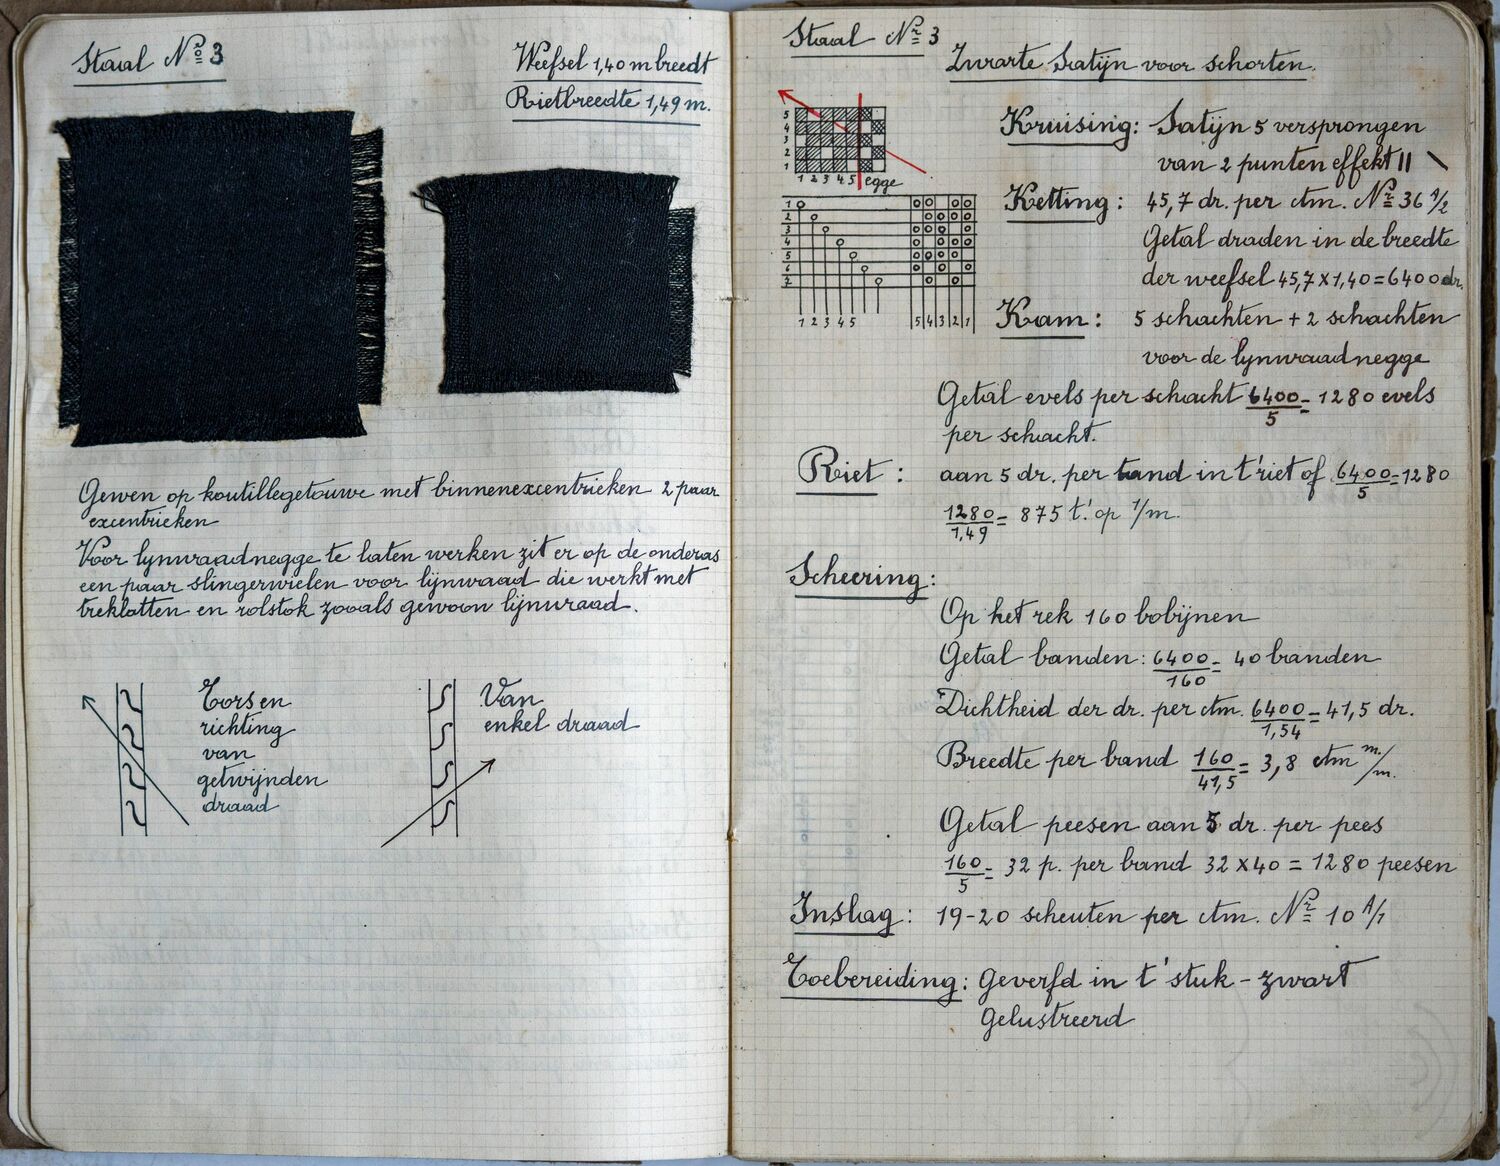 Staal No 3
Weefsel 1,40 m breedt
Rietbreedte 1,49 m.
Gewen op koutillegetouwe met binnenexcentrieken 2 paar
excentrieken
Voor lynwraadnegge te laten werken zit er op de onderas
een paar slingerwielen voor lijnwaad die werkt met
treklatten en rolstok zooals gewoon lijnwaad.
Torsen
richting
van
getwijnden
draad
Van
enkel draad
Staal Nr 3
Zwarte Satijn voor schorten.
5
4
3
2
1
1 2 3 4 5 egge
1
2
3
4
5
6
7
1 2 3 4 5
5 4 3 2 1
Kruising: Satijn 5 versprongen
van 2 punten effekt II \
Ketting: 45,7 dr. per ctm. Nr 36 A/2
Getal draden in de breedte
der weefsel 45,7 x 1,40 = 6400 dr.
Kam: 5 schachten + 2 schachten
voor de lynwraadnegge
Getal evels per schacht 6400/5 = 1280 evels
per schacht.
Riet: aan 5 dr. per tand in t'riet of 6400/5 = 1280
1280/1,49 = 875 t.' op 1/m.
Scheering:
Op het rek 160 bobijnen
Getal banden: 6400/160 = 40 banden
Dichtheid der dr. per ctm. 6400/1,54 = 41,5 dr.
Breedte per band 160/41,5 = 3,8 ctm m./m.
Getal peesen aan 5 dr. per pees
160/5 = 32 p. per band 32 x 40 = 1280 peesen
Inslag: 19-20 scheuten per ctm. Nr 10 A/1
Toebereiding: Geverfd in t' stuk - zwart
Gelustreerd